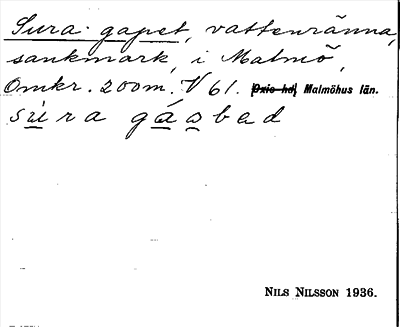 Sura gapet, vattenränna,
sankmark, i Malmö,
Omkr. 200m. V 61. Oxie hd, Malmöhus län.
sùra gásbed
NILS NILSSON 1936.